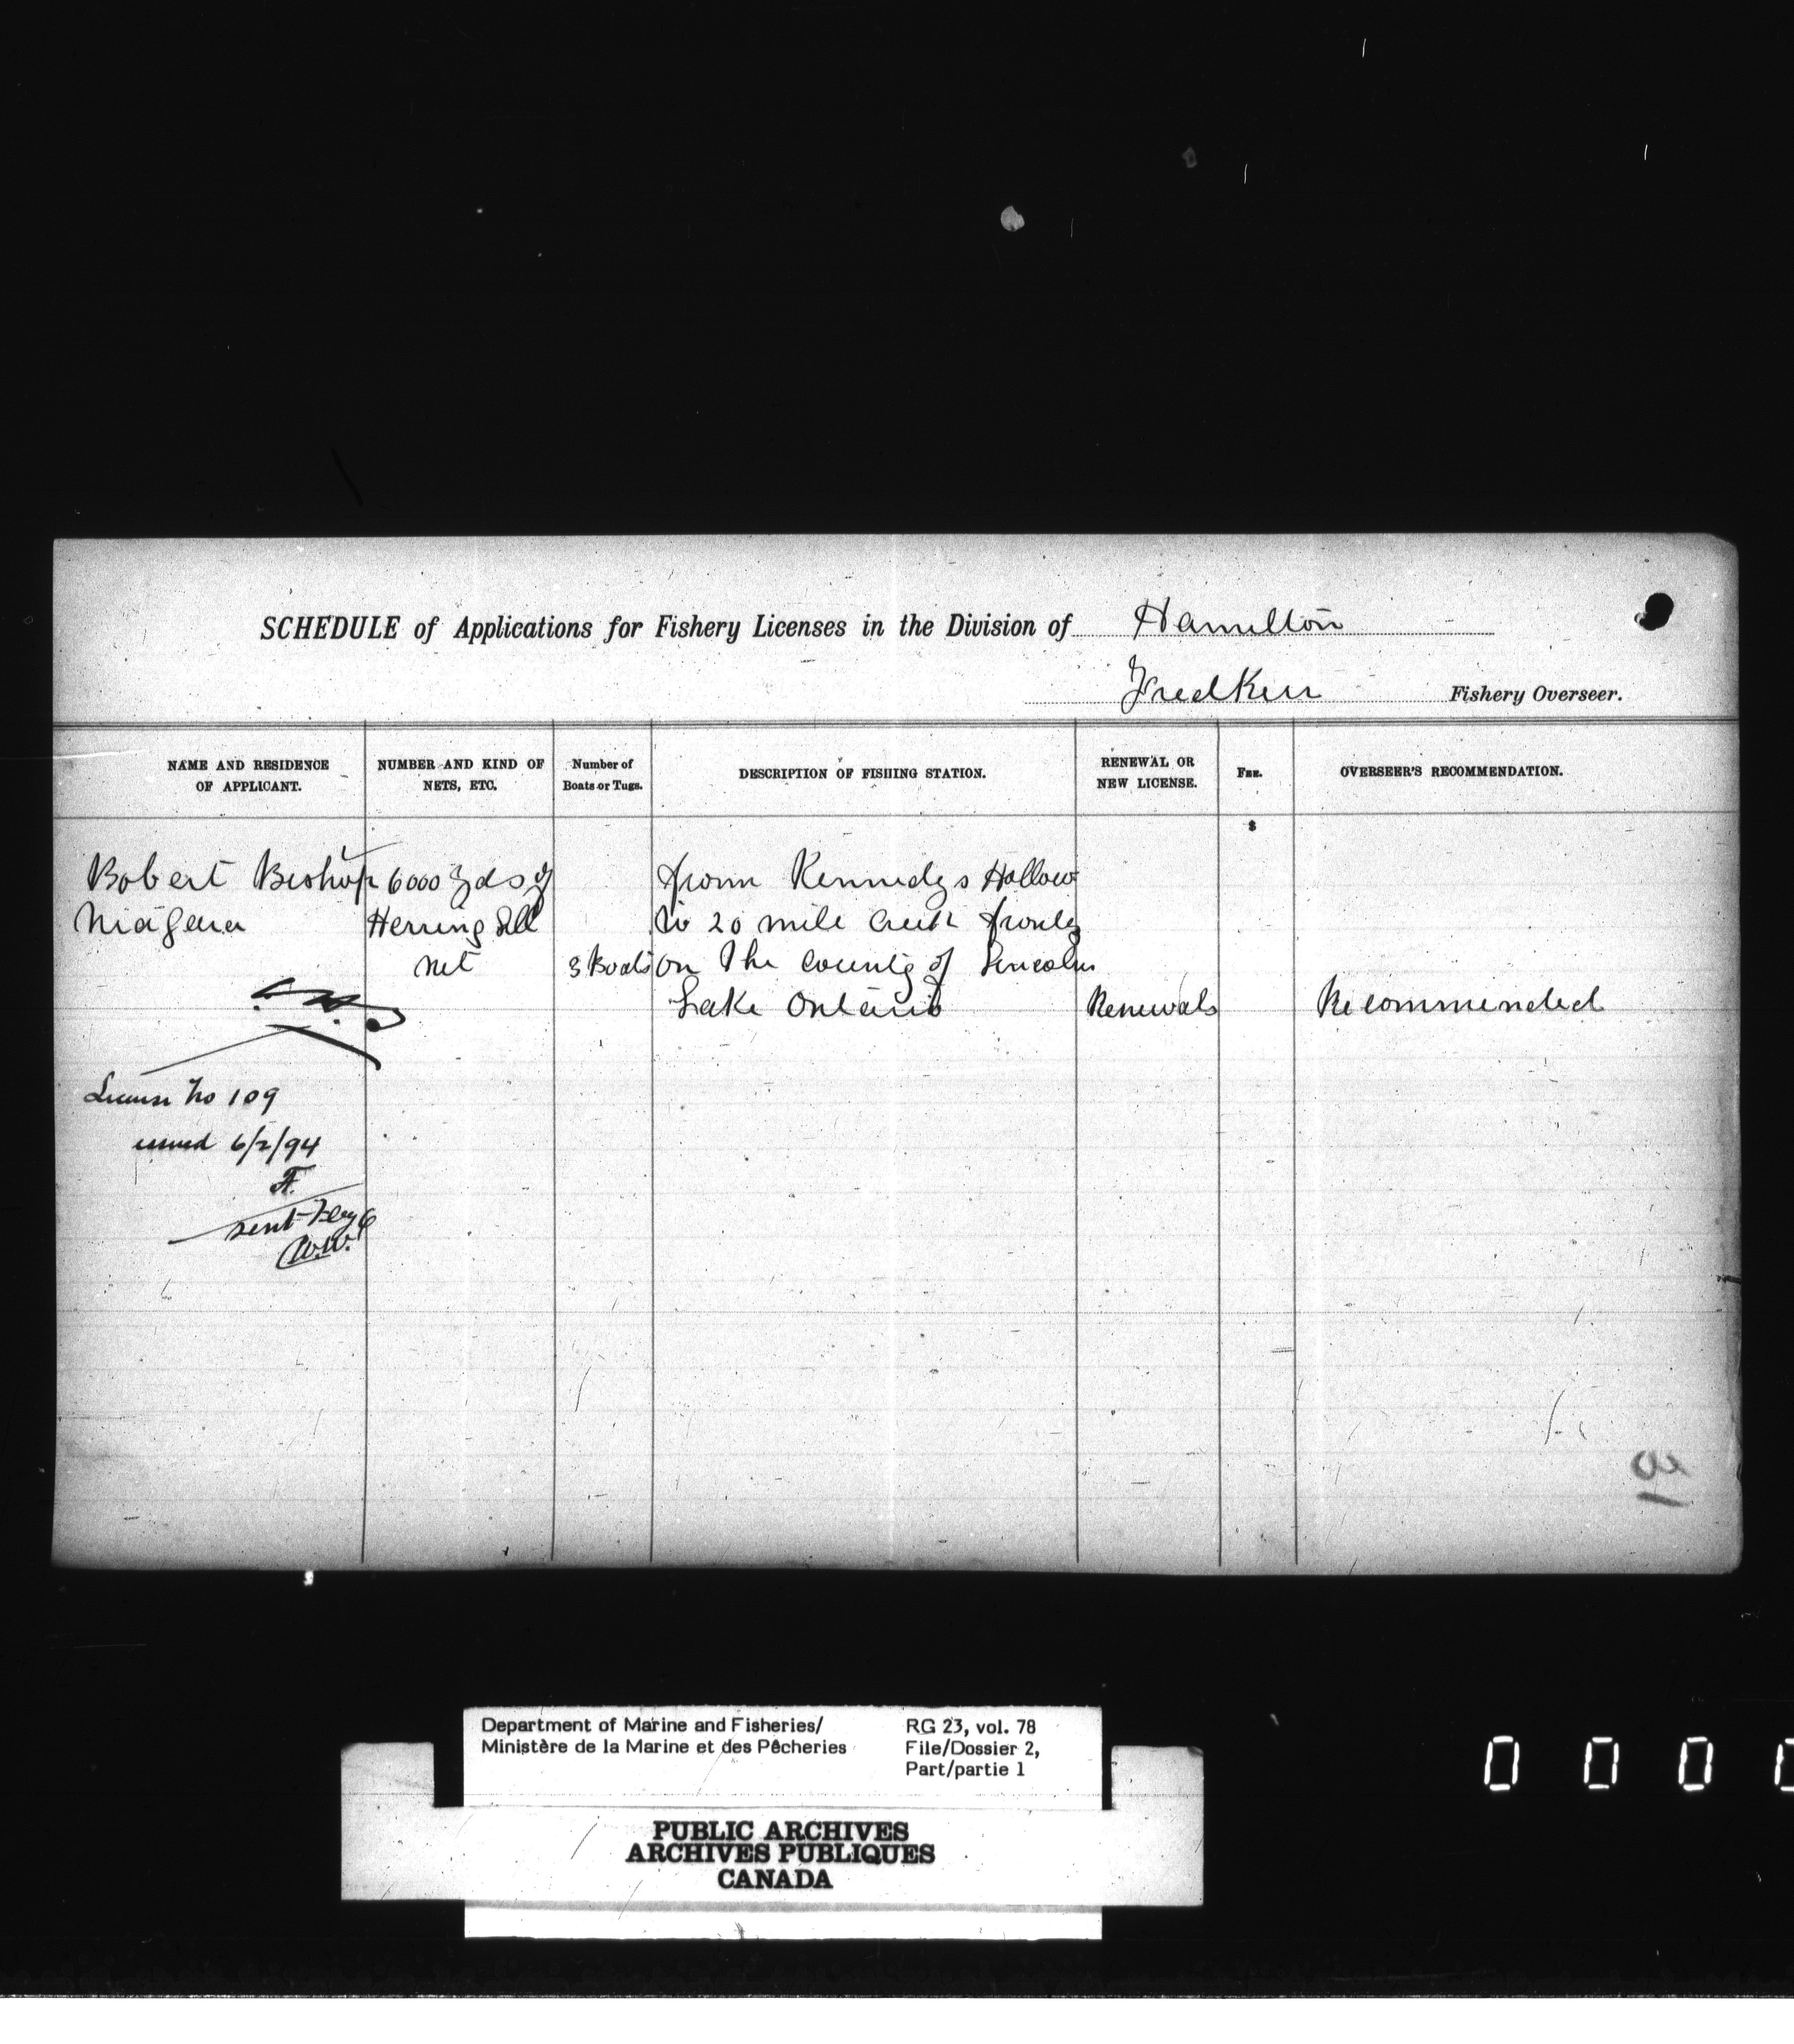 SCHEDULE of Applications for Fishery Licenses in the Division of Hamilton
Fred Kerr Fishery Overseer.
NAME AND RESIDENCE OF APPLICANT.
NUMBER AND KIND OF NETS, ETC.
Number of Boats or Tugs.
DESCRIPTION OF FISHING STATION.
RENEWAL OR NEW LICENSE.
FEE.
OVERSEER'S RECOMMENDATION.
$
Robert Bishop 6000 yds of from Kennedys Hollow
Niagara Herring Gill to 20 mile Creek fronting
net 3 Boats on the county of Lincoln
Lake Ontario Renewals Recommended
License No 109
issued 6/2/94
sent Feby 6
W.W.
Department of Marine and Fisheries/ RG 23, vol. 78
Ministère de la Marine et des Pêcheries File/Dossier 2,
Part/partie 1
0 0 0
PUBLIC ARCHIVES
ARCHIVES PUBLIQUES
CANADA